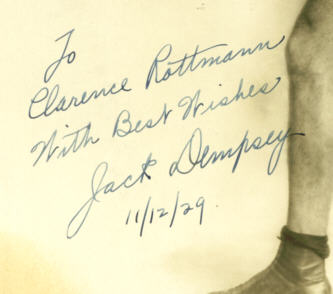 To
Clarence Rottmann
With Best Wishes
Jack Dempsey
11/12/29.